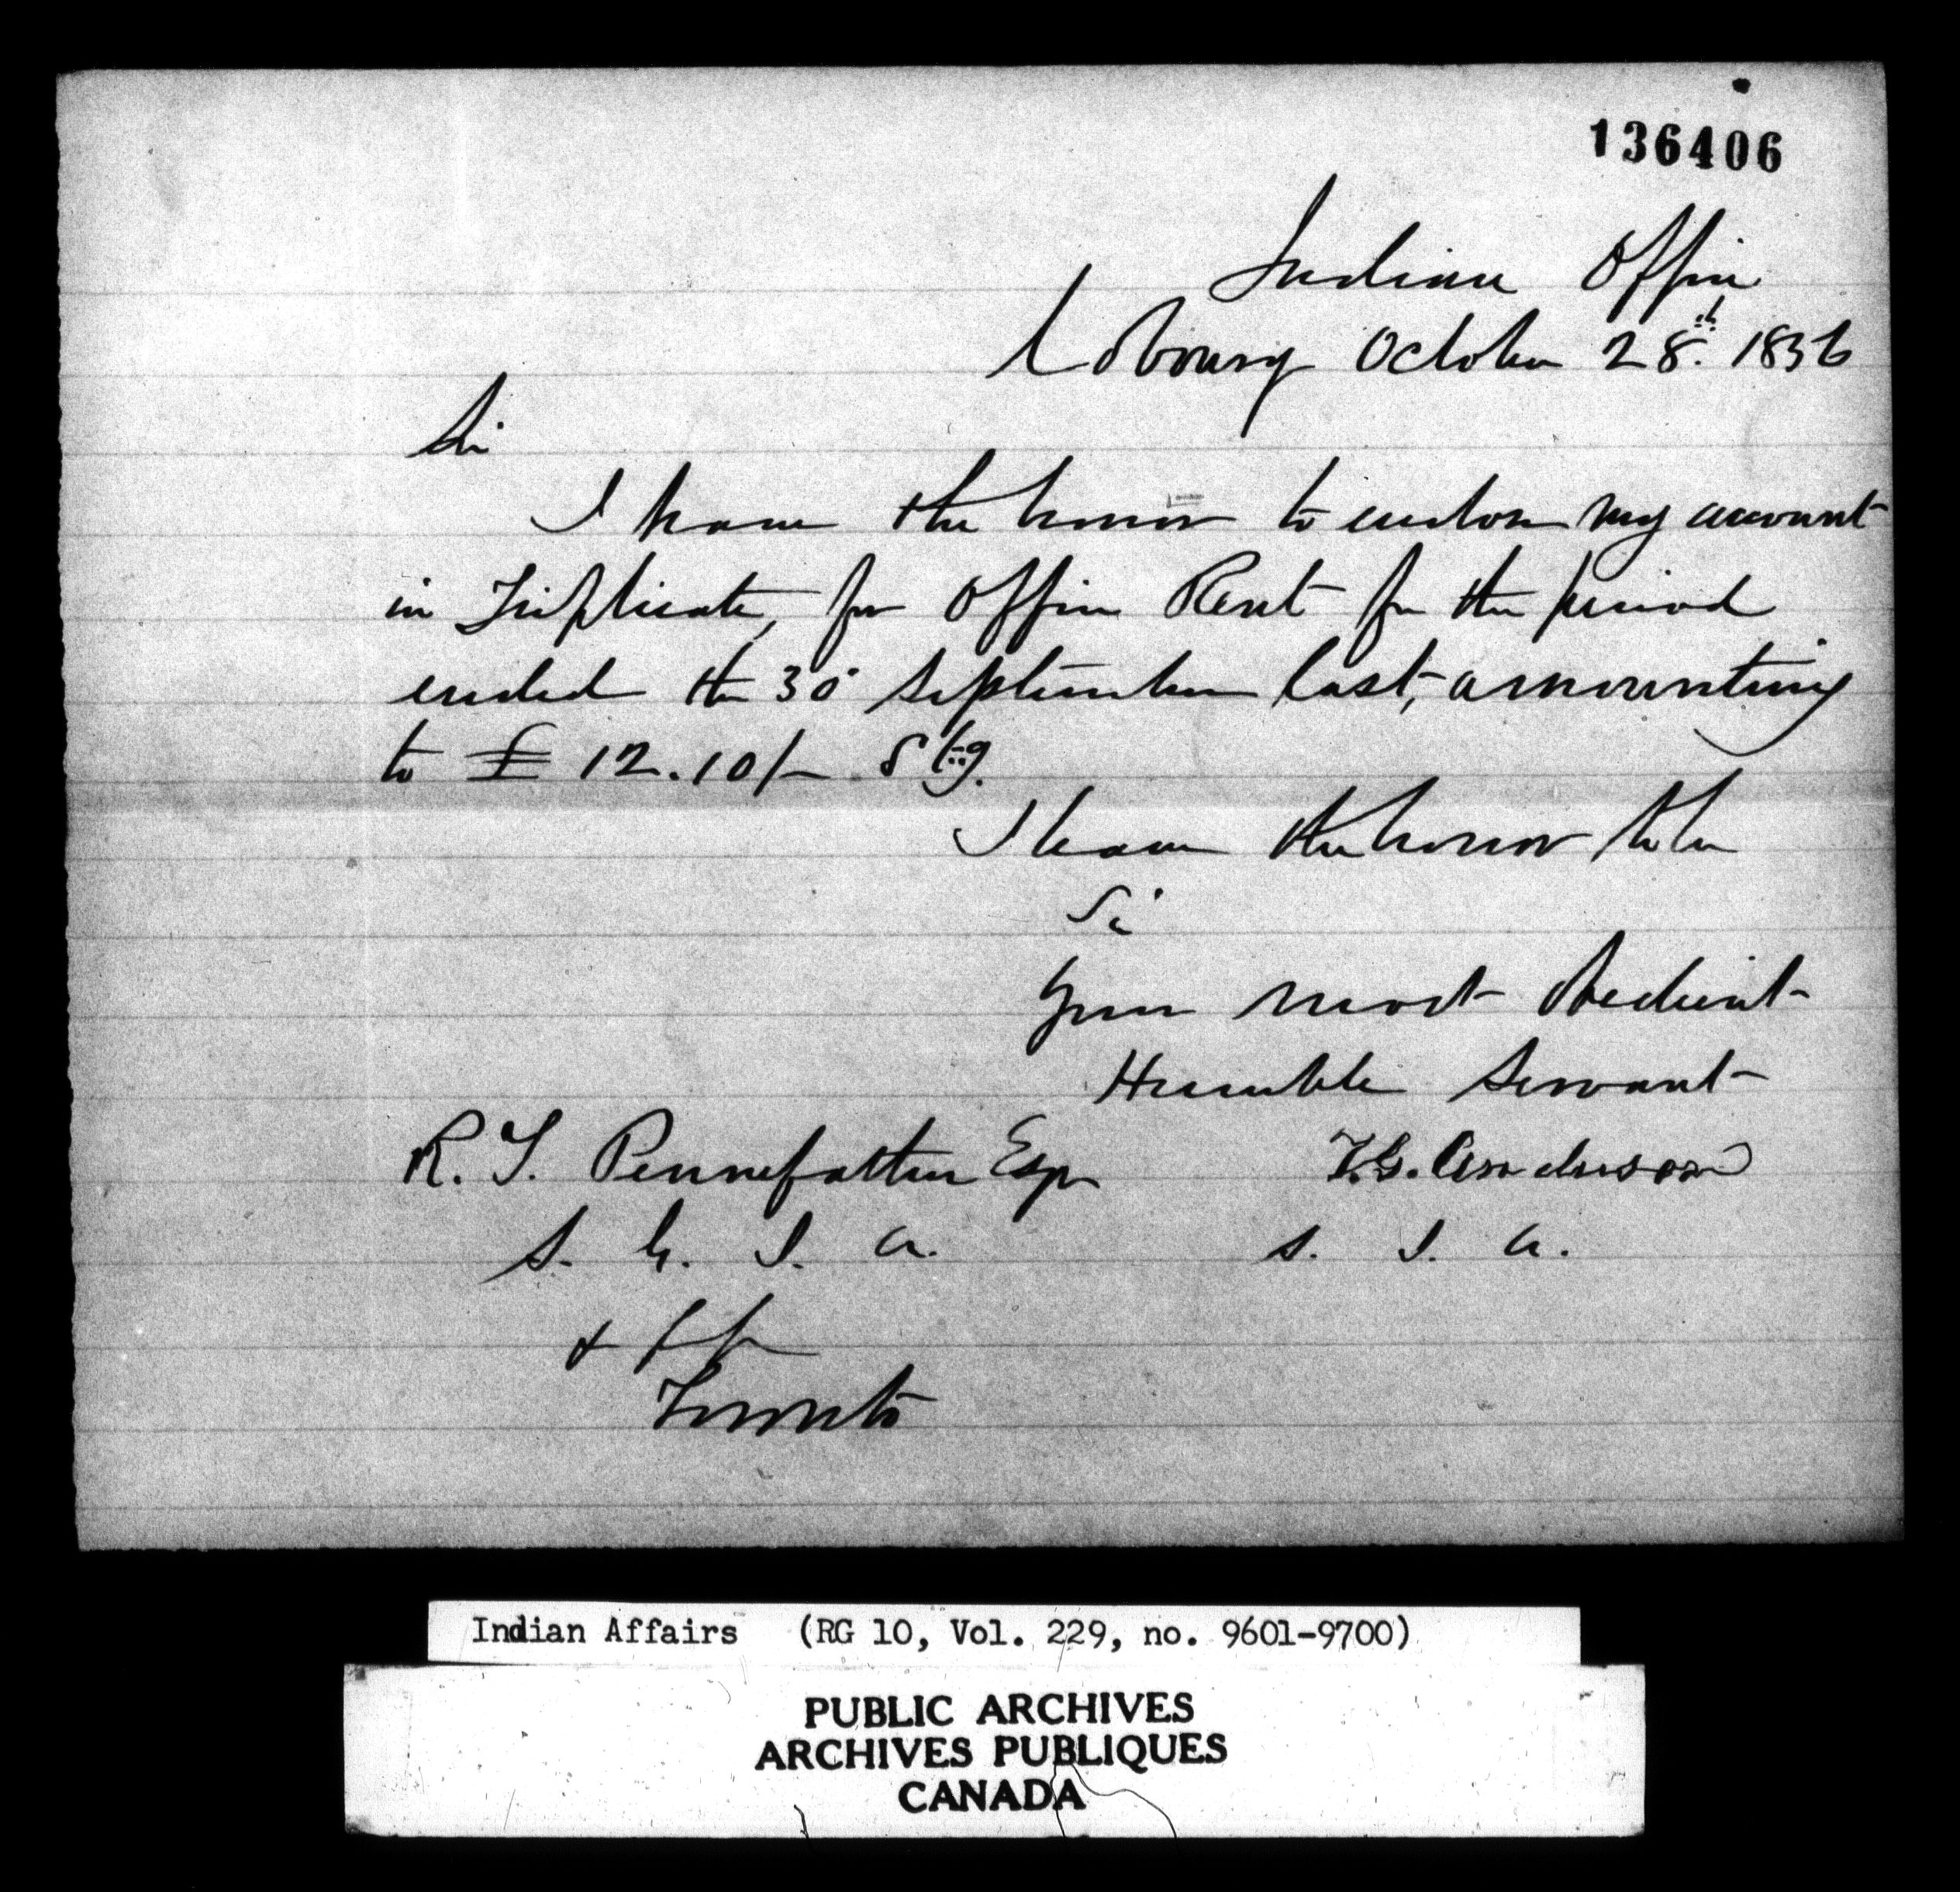 136406
Indian Office
Cobourg October 28th. 1856
Sir
I have the honor to enclose my account
in Triplicate, for Office Rent for the period
ended the 30 September last, amounting
to £ 12.10/- Stg.
I have the honor to be
Sir
Your most Obedient
Humble Servant
R. T. Pennefather Esqr
T.G. Anderson
S. G. I. A.
S. I. A.
&
Toronto
Indian Affairs (RG 10, Vol. 229, no. 9601-9700)
PUBLIC ARCHIVES
ARCHIVES PUBLIQUES
CANADA